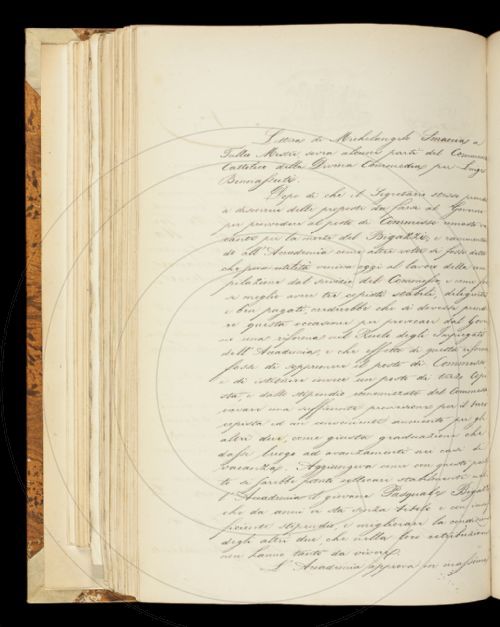 Lettera di Michelangelo Smania a
Tullio Mestri sovra alcune parti del Comento
Cattolico della Divina Commedia per Luigi
Bennassuti.
Dopo di che il Segretario stesso prende
a discorrere delle proposte da farsi al Governo
per provvedere al posto di Commesso rimasto va-
cante per la morte del Bigazzi, e rammentan-
do all'Accademia come altra volta si fosse detto
che poca utilità veniva oggi al lavoro della com-
pilazione dal servizio del Commesso, e come fos-
se meglio avere tre copisti stabili, diligenti
e ben pagati, crederebbe che si dovesse prende-
re questa occasione per provocare dal Gover-
no una riforma nel Ruolo degli Impiegati
dell'Accademia, e che effetto di questa riforma
fosse di sopprimere il posto di Commesso
e di istituire invece un posto di terzo Copi-
sta, e dallo stipendio economizzato del Commesso
cavare una sufficiente provvisione per il terzo
copista ed un conveniente aumento per gli
altri due, come giusta graduazione che
dasse luogo ad avanzamenti nei casi di
vacanza. Aggiungeva come con questo par-
tito si sarebbe potuto collocare stabilmente nel-
l'Accademia il giovane Pasquale Bigazzi
che da anni vi sta senza titolo e con insuf-
ficiente stipendio, e migliorare la condizione
degli altri due che nella loro retribuzione
non hanno tanto da vivere.
L'Accademia approva in massima